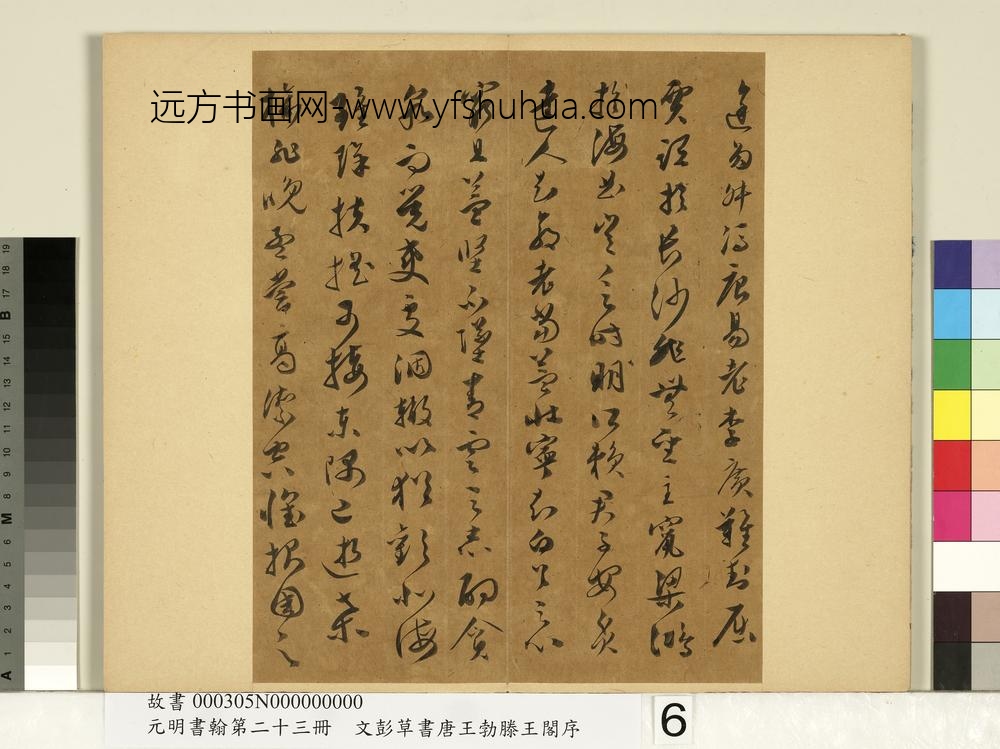 途多舛馮唐易老李廣難封屈
賈誼於長沙非無聖主竄梁鴻
於海曲豈乏時明所賴君子安貧
達人知命老當益壯寧知白首之心
窮且益堅不墜青雲之志酌貪
泉而覺爽處涸轍以猶歡北海
雖賒扶搖可接東隅已逝桑
榆非晚孟嘗高潔空懷報國之
远方书画网-www.yfshuhua.com
故書 000305N000000000
元明書翰第二十三冊 文彭草書唐王勃滕王閣序
6
A 1 2 3 4 5 6 M 8 9 10 11 12 13 14 15 B 17 18 19